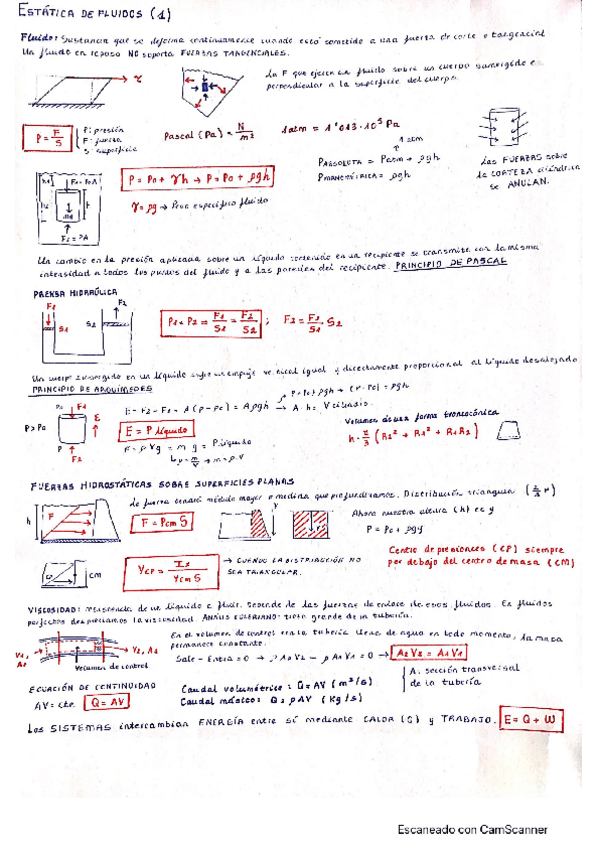 ESTÁTICA DE FLUIDOS (1)
Fluido: Sustancia que se deforma continuamente cuando está sometido a una fuerza de corte o tangencial
Un fluido en reposo NO soporta FUERZAS TANGENCIALES.
τ
La F que ejerce un fluido sobre un cuerpo sumergido es
perpendicular a la superficie del cuerpo.
P = F/S
P: presión
F: fuerza
S: superficie
Pascal (Pa) = N/m²
1atm = 1'013·10⁵ Pa
1 atm
PABSOLUTA = Patm + ρgh
PMANOMÉTRICA = ρgh
Las FUERZAS sobre
la CORTEZA cilíndrica
se ANULAN.
P = Po + γh → P = Po + ρgh
γ = ρg → Peso específico fluido
F2 = PA
Un cambio en la presión aplicada sobre un líquido contenido en un recipiente se transmite con la misma
intensidad a todos los puntos del fluido y a las paredes del recipiente. PRINCIPIO DE PASCAL
PRENSA HIDRÁULICA
F1
F2
S1
S2
P1 = P2 = F1/S1 = F2/S2 ; F2 = F1/S1 · S2
Un cuerpo sumergido en un líquido sufre un empuje vertical igual y directamente proporcional al líquido desalojado
PRINCIPIO DE ARQUÍMEDES
P > Po
Po
F1
E
P
F2
E = F2 - F1 = A (P - Po) = Aρgh → A·h = V
P = Po + ρgh → (P - Po) = ρgh
E = P líquido
E = ρVg = m g = P líquido
ρ = m/V → m = ρ·V
Volumen forma troncocónica
h · π/3 (R2² + R1² + R1R2)
FUERZAS HIDROSTÁTICAS SOBRE SUPERFICIES PLANAS
La fuerza tendrá módulo mayor a medida que profundizamos. Distribución triangular
h
F
F = PCM S
Ahora nuestra altura (h) es y
P = Po + ρgy
CM
YCP = Ix / YCM S
→ CUANDO LA DISTRIBUCIÓN NO
SEA TRIANGULAR.
Centro de presiones (CP) siempre
por debajo del centro de masa (CM)
VISCOSIDAD: resistencia de un líquido a fluir. Depende de las fuerzas de enlace de esos fluidos. En fluidos
perfectos despreciamos la viscosidad.
V1, A1
V2, A2
Volumen de control
En el volumen de control en la tubería llena de agua en todo momento, la masa
permanece constante.
Sale - Entra = 0 → ρA2V2 - ρA1V1 = 0 → A2V2 = A1V1
A: sección transversal
de la tubería
ECUACIÓN DE CONTINUIDAD
AV = cte. Q = AV
Caudal volumétrico: Q = AV (m³/s)
Caudal másico: Q = ρAV (Kg/s)
Los SISTEMAS intercambian ENERGÍA entre sí mediante CALOR (Q) y TRABAJO. E = Q + W
Escaneado con CamScanner